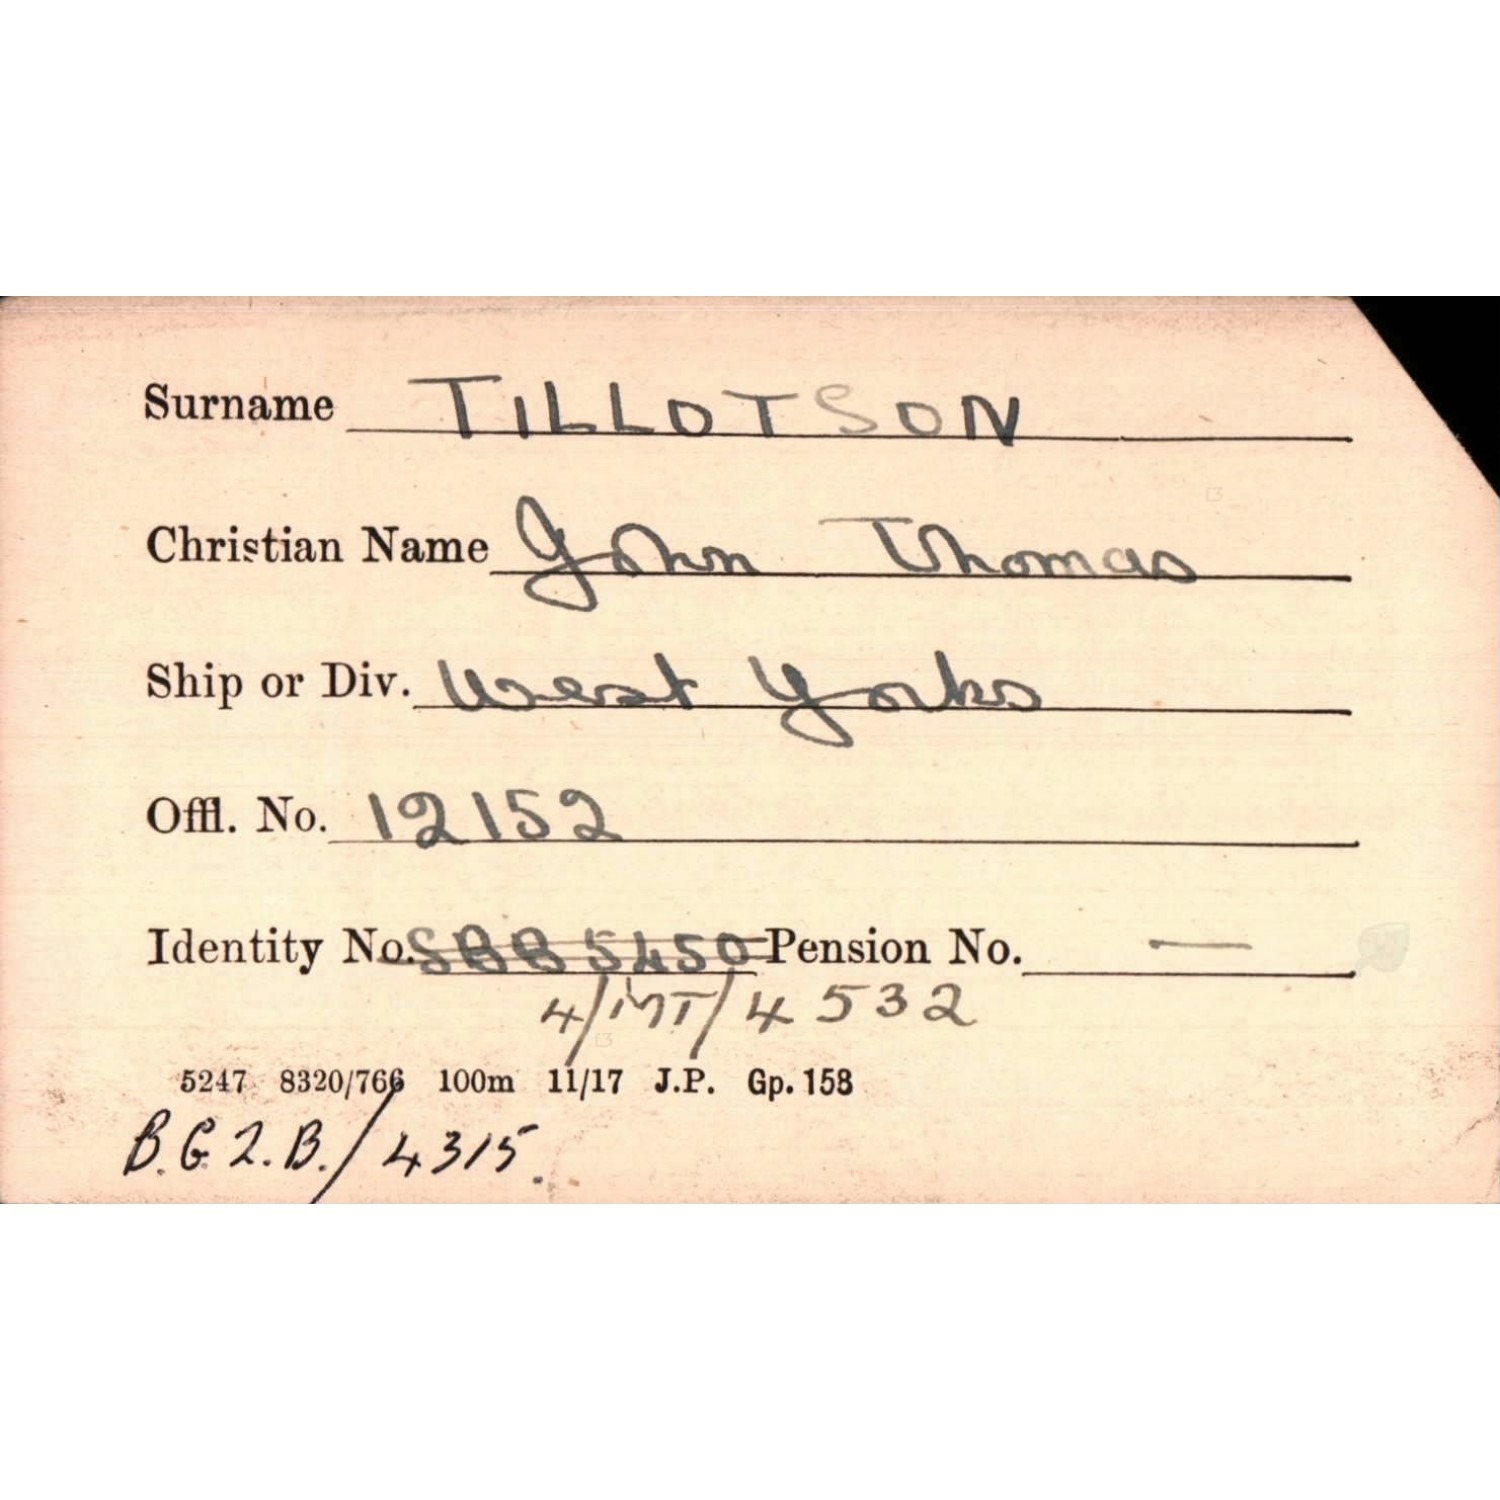 Surname TILLOTSON
Christian Name John Thomas
Ship or Div. West Yorks
Offl. No. 12152
Identity No. SBB 5450 Pension No. —
4/MT/4532
5247 8320/766 100m 11/17 J.P. Gp. 158
B.G.2.B./4315.